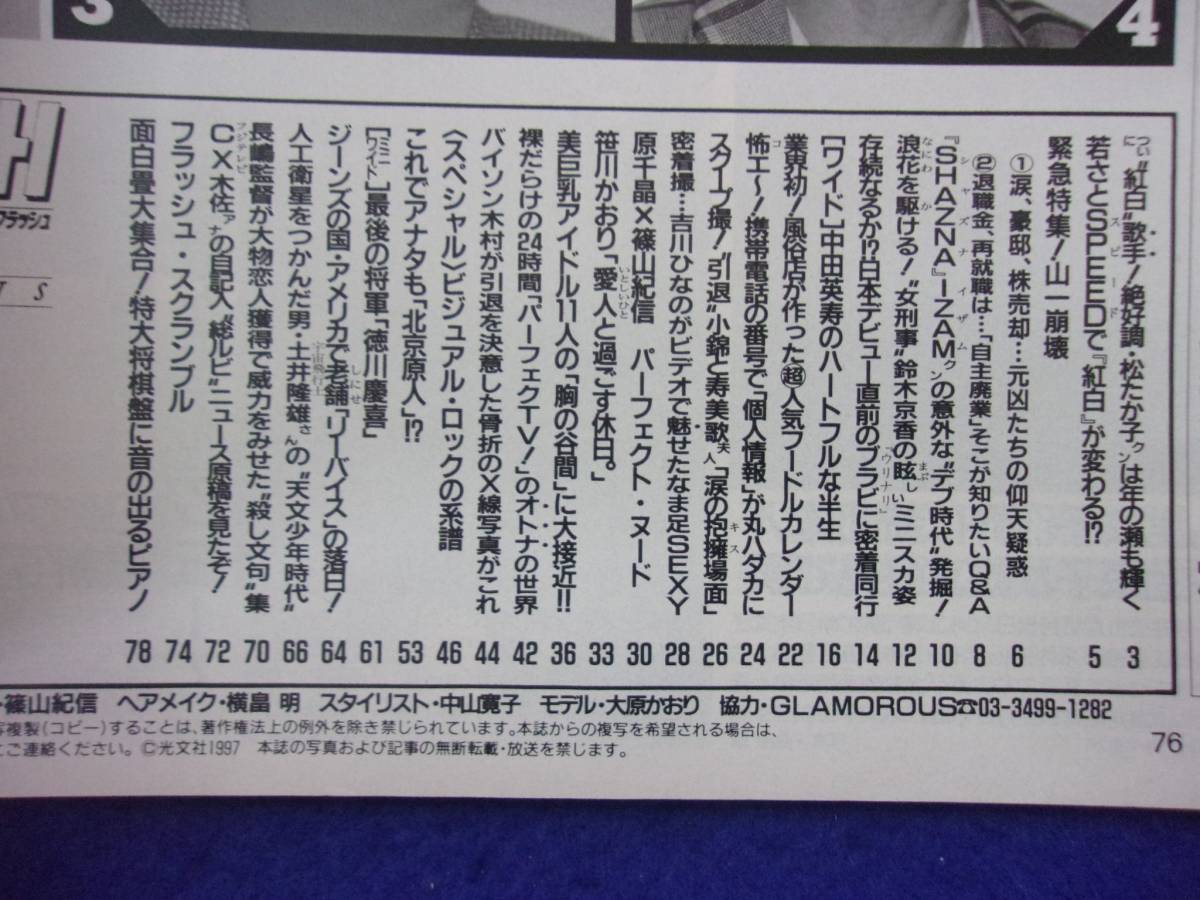 3
4
フラッシュ
T S
つい に“紅白”歌手！絶好調・松たか子クンは年の瀬も輝く 3
若さとSPEEDスピードで『紅白』が変わる!? 5
緊急特集！山一崩壊
①涙、豪邸、株売却…元凶たちの仰天疑惑 6
②退職金、再就職は…「自主廃業」そこが知りたいQ&A 8
『SHAZNAシャズナ』－IZAMイザムクンの意外な“デブ時代”発掘！ 10
浪花なにわを駆かける！“女刑事”鈴木京香の眩まぶしいミニスカ姿 12
存続なるか!?日本デビュー直前のブラビに密着同行「ウリナリ」 14
[ワイド]中田英寿のハートフルな半生 16
業界初！風俗店が作った超人気フードルカレンダー 22
怖コエ～！携帯電話の番号で「個人情報」が丸ハダカに 24
スクープ撮！“引退”小錦と寿美歌夫人「涙の抱擁キス場面」 26
密着撮…吉川ひなのがビデオで魅せたなま足SEXY 28
原千晶×篠山紀信 パーフェクト・ヌード 30
笹川かおり「愛人いとしいひとと過ごす休日。」 33
美巨乳アイドル11人の「胸の谷間」に大接近!! 36
裸だらけの24時間「パーフェクTV！」のオトナの世界 42
バイソン木村が引退を決意した骨折のX線写真がこれ 44
〈スペシャル〉ビジュアル・ロックの系譜 46
これでアナタも「北京原人」!? 53
[ミニワイド]最後の将軍「徳川慶喜」 61
ジーンズの国・アメリカで老舗しにせ「リーバイス」の落日！ 64
人工衛星をつかんだ男・土井隆雄宇宙飛行士さんの“天文少年時代” 66
長嶋監督が大物恋人獲得で威力をみせた“殺し文句”集 70
CXフジテレビ木佐アナの自記入“総ルビ”ニュース原稿を見たぞ！ 72
フラッシュ・スクランブル 74
面白畳大集合！特大将棋盤に音の出るピアノ 78
・篠山紀信 ヘアメイク・横畠 明 スタイリスト・中山寛子 モデル・大原かおり 協力・GLAMOROUS☎03-3499-1282
写複製(コピー)することは、著作権法上の例外を除き禁じられています。本誌からの複写を希望される場合は、
ご連絡ください。 ©光文社1997 本誌の写真および記事の無断転載・放送を禁じます。
76